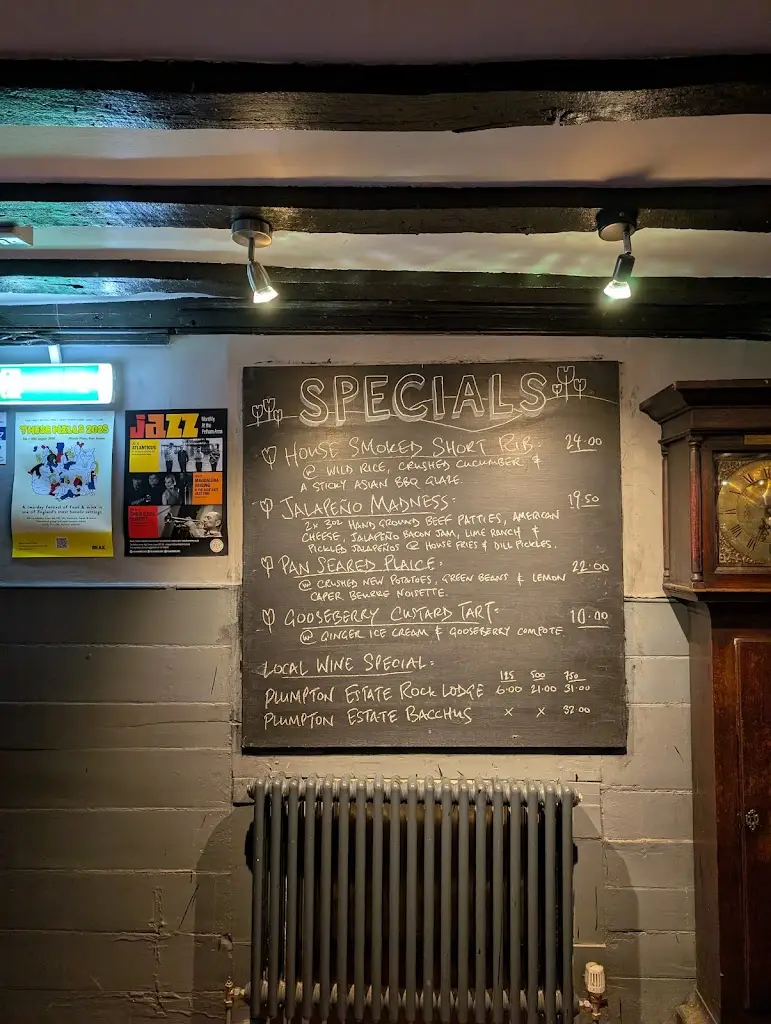 SPECIALS
HOUSE SMOKED SHORT RIB. 24.00
@ WILD RICE, CRUSHED CUCUMBER &
A STICKY ASIAN BBQ GLAZE
JALAPEÑO MADNESS. 19.50
2x 3oz HAND GROUND BEEF PATTIES, AMERICAN
CHEESE, JALAPEÑO BACON JAM, LIME RANCH &
PICKLED JALAPEÑOS @ HOUSE FRIES & DILL PICKLES.
PAN SEARED PLAICE. 22.00
@ CRUSHED NEW POTATOES, GREEN BEANS & LEMON
CAPER BEURRE NOISETTE.
GOOSEBERRY CUSTARD TART. 10.00
W GINGER ICE CREAM & GOOSEBERRY COMPOTE
LOCAL WINE SPECIAL.
500 750
PLUMPTON ESTATE ROCK LODGE 6.00 21.00 31.00
PLUMPTON ESTATE BACCHUS X X 32.00
jazz
Monthly
At the
ATLANTICUS